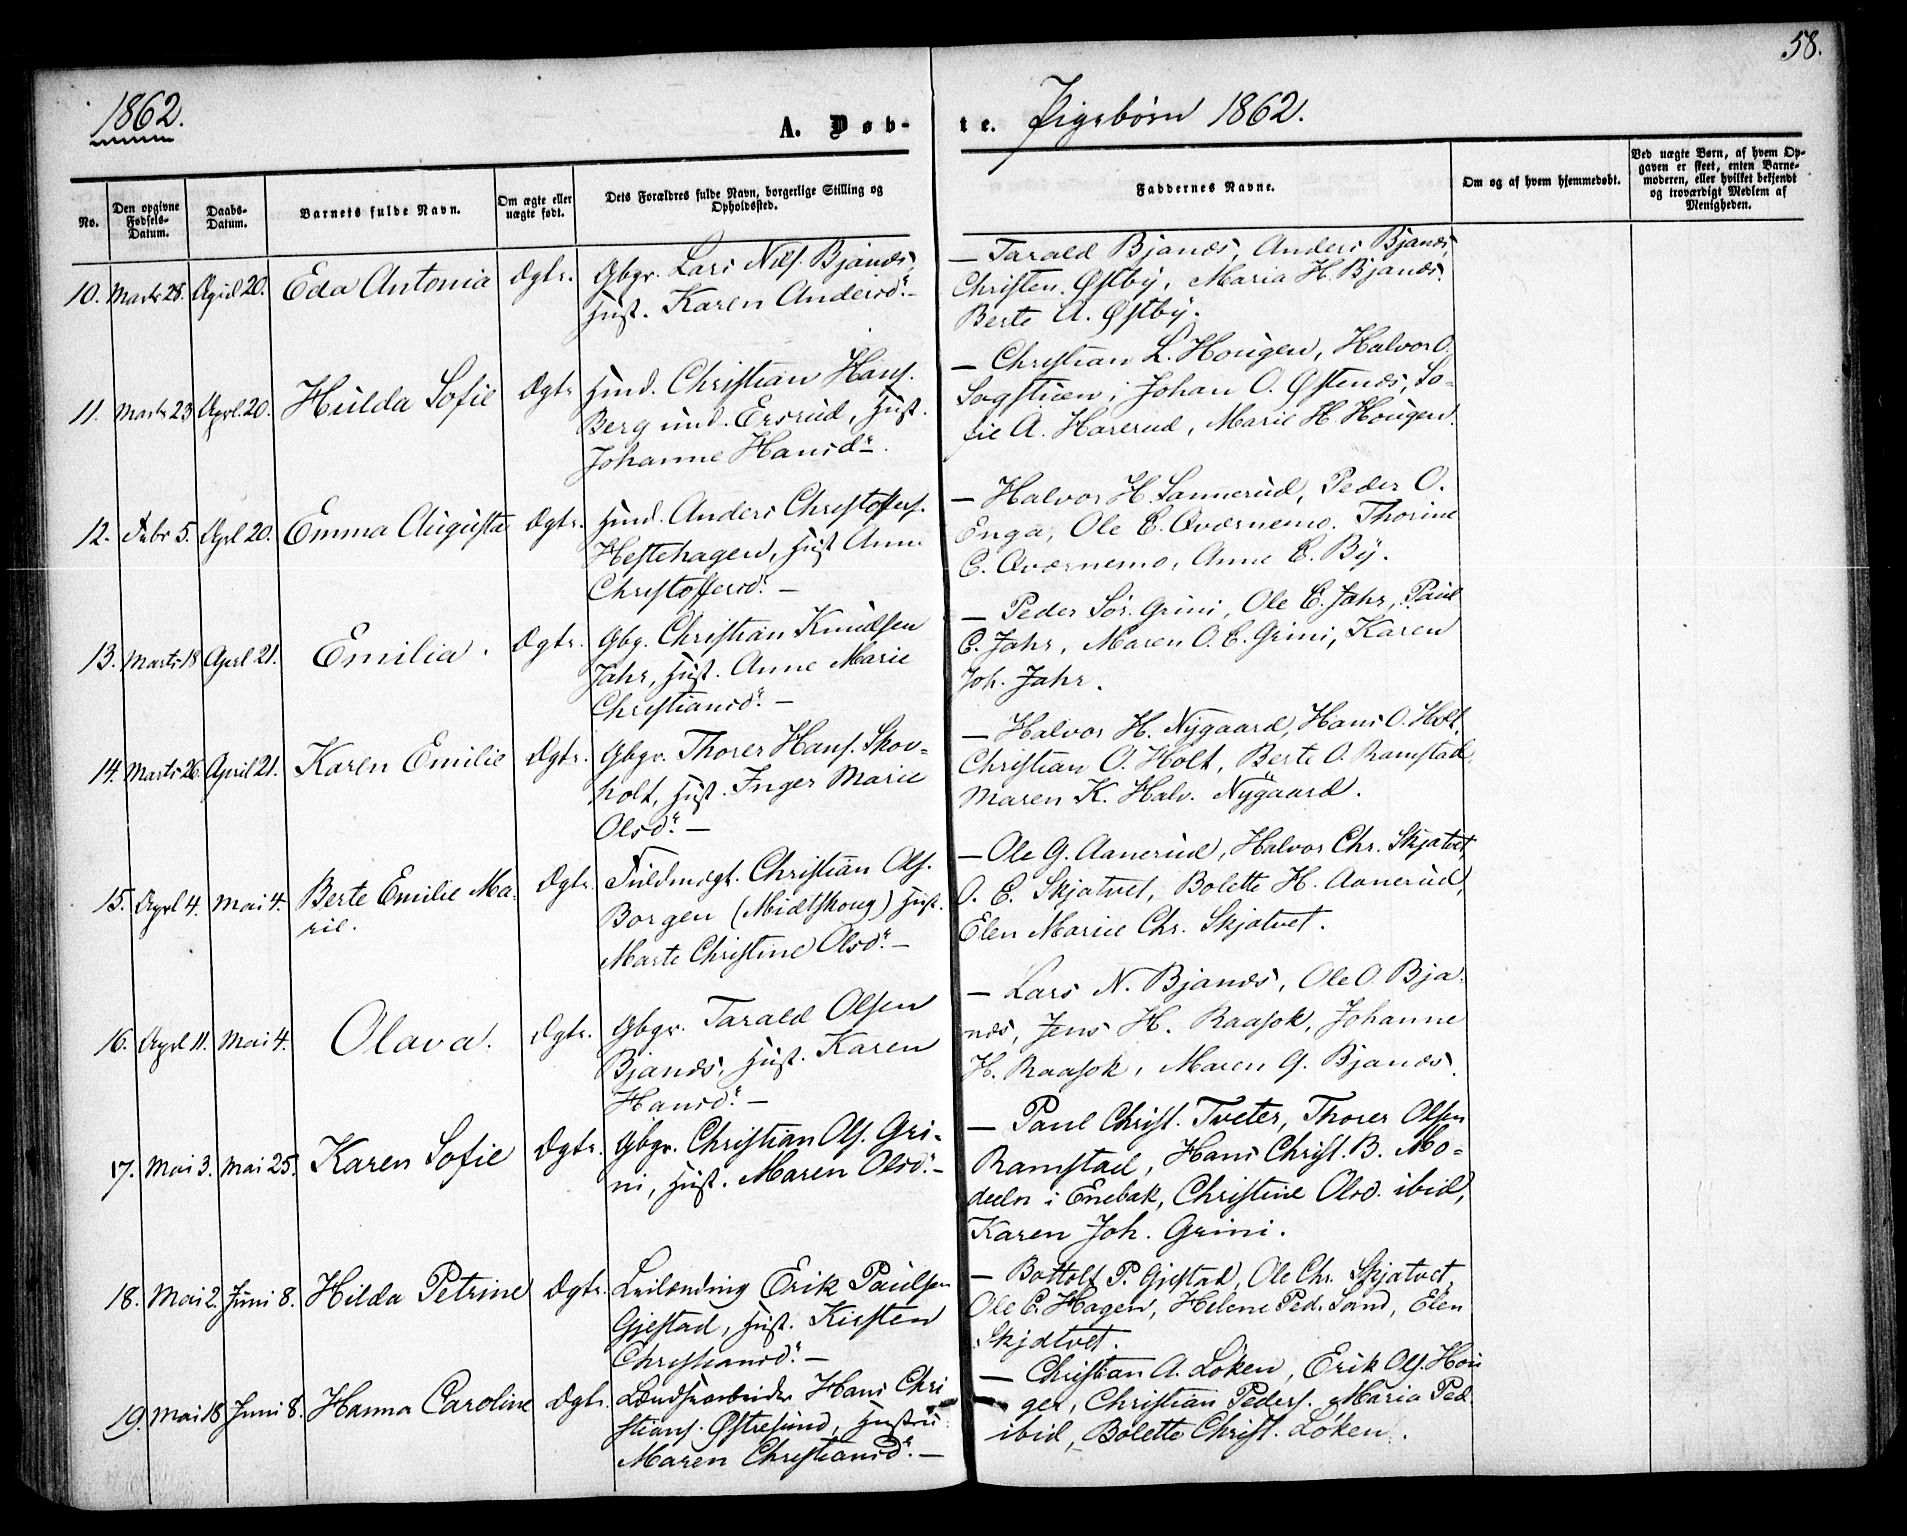 58.
1862.
A. Døb-
te. Pigebørn 1862.
No.
Den opgivne Fødsels-Datum.
Daabs-Datum.
Barnets fulde Navn.
Om ægte eller uægte født.
Dets Forældres fulde Navn, borgerlige Stilling og Opholdssted.
Faddernes Navne.
Om og af hvem hjemmedøbt.
Ved uægte Børn, af hvem Opgaven er skeet, enten Barnemoderen, eller hvilket bekjendt og troværdigt Medlem af Menigheden.
10. Marts 28. April 20. Eda Antonia Dgtr. Gbgr. Lars Nils. Bjanæs,
Hust. Karen Andersd. —
— Tarald Bjanæs, Anders Bjanæs,
Christen. Østby, Maria H. Bjanæs
Berte A. Østby.
11. Marts 23 Aprl. 20. Hulda Sofie Dgtr Huud. Christian Hans.
Berg und. Ersrud, Hust.
Johanne Hansd.
— Christian L. Hougen, Halvor O.
Sagstuen, Johan O. Østenæs, So-
fie A. Harerud, Marie H. Hougen.
12. Febr 5. Aprl 20. Emma Augusta Dgtr. Huud. Anders Christoffers.
Hestehagen, Hust Anne
Christoffersd. —
— Halvor H. Sannerud, Peder O.
Enga, Ole C. Qværnemo. Thorine
C. Qværnemo, Anne E. By.
13. Marts 18 Aprl 21. Emilia. Dgtr. Gbg. Christian Knudsen
Jahr, Hust. Anne Marie
Christiansd. —
— Peder Sør. Grini, Ole C. Jahr, Paul
C. Jahr, Maren O. C. Grini, Karen
Joh. Jahr.
14. Marts 26. April 21. Karen Emilie Dgtr. Gbgr. Thorer Hans. Skov-
holt, Hust. Inger Marie
Olsd. —
— Halvor H. Nygaard, Hans O. Holt,
Christian O. Holt, Berte O. Ramstad,
Maren K. Halv. Nygaard.
15. Aprl 4. Mai 4. Berte Emilie Ma-
rie. Dgtr. Fuldmægt. Christian Ols.
Borgen (Midtskoug) Hust.
Marte Christine Olsd. —
— Ole G. Aanerud, Halvor Chr. Skjatvet,
O. C. Skjatvet, Bolette H. Aanerud,
Elen Marie Chr. Skjatvet.
16. Aprl 11. Mai 4. Olava. Dgtr. Gbgr. Tarald Olsen
Bjanæs, Hust. Karen
Hansd. —
— Lars N. Bjanæs, Ole O. Bja-
næs, Jens H. Raasok, Johanne
H. Raasok, Maren G. Bjanæs.
17. Mai 3. Mai 25. Karen Sofie Dgtr. Gbgr. Christian Ols. Gri-
ni, Hust. Maren Olsd. —
— Paul Christ. Tveter, Thorer Olsen
Ramstad, Hans Christ. B. Mo-
deeln i Enebak, Christine Olsd. ibid,
Karen Joh. Grini.
18. Mai 2. Juni 8. Hilda Petrine Dgtr. Leilænding Erik Paulsen
Gjestad, Hust. Kirsten
Christiansd. —
— Bottolf P. Gjestad, Ole Chr. Skjatvet,
Ole C. Hagen, Helene Ped. Sand, Elen
Skjatvet.
19. Mai 18 Juni 8. Hanna Caroline Dgtr. Landsarbeider Hans Chri
stians. Østresund, Hustru
Maren Christiansd. —
— Christian A. Løken, Erik Ols. Hou
ger, Christian Peders. Maria Ped.
ibid, Bolette Christ. Løken.